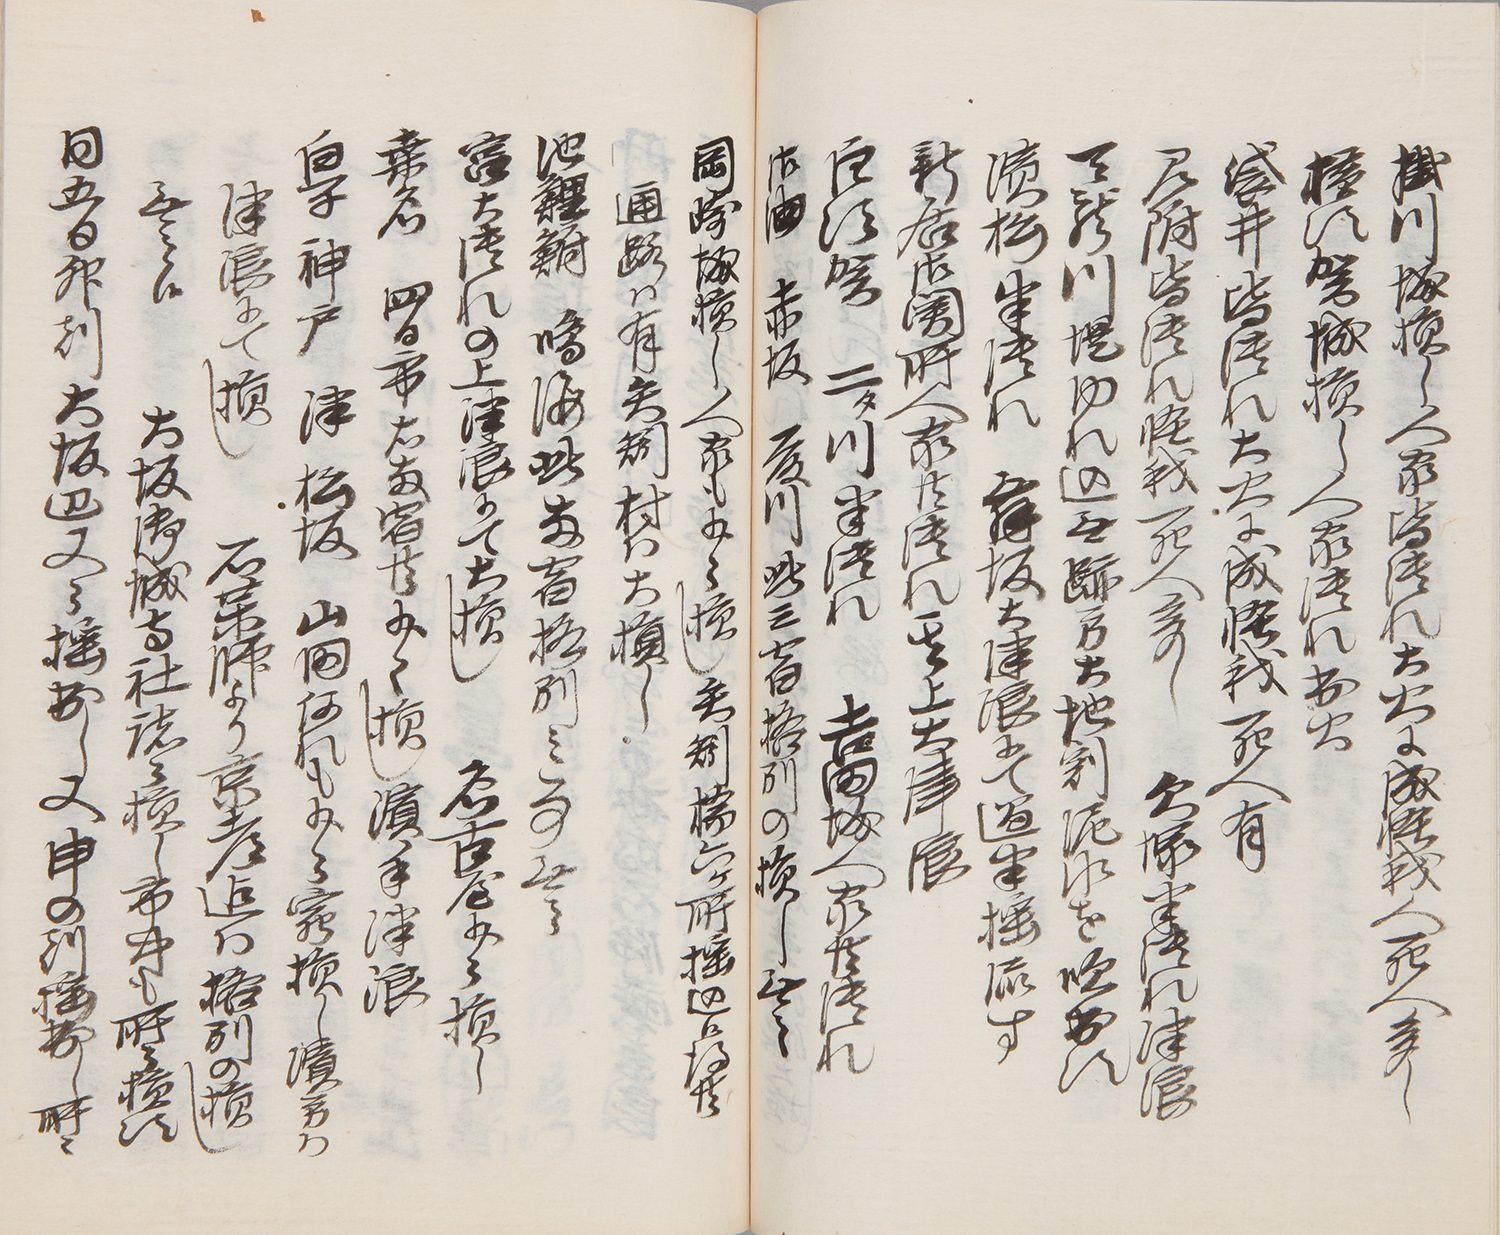 掛川 城損し人家皆潰れ大火ニ成怪我人死人多し
横須賀城損し人家潰れ出火
袋井皆潰れ大火ニ成怪我死人有
見附皆潰れ怪我死人多し 欠塚半潰れ津浪
天龍川堤ゆれ込無跡方大地割泥水を吹出ス
濱松半潰れ 舞坂大津浪ニて過半揺流す
新居御関所人家共潰れ其上大津浪
白須賀 二タ川半潰れ 吉田城人家共潰れ
御油 赤坂 藤川此三宿格別の損し無之
岡崎城損し人家も少々損し 矢矧橋六ケ所揺込候得共
通路ハ有矢矧村ハ大損し
池鯉鮒 鳴海此両宿格別之事無之
宮大潰れの上津浪ニて大損し 名古屋少々損し
桑名 四日市右両宿共少々損し 濱手津浪
白子 神戸 津 松坂 山田何れも少々宛損し濱方ハ
津浪ニて損し 石薬師より京都迄ハ格別の損し
無之候 大坂御城寺社諸々損し市中も所々損ス
同五日卯刻大坂辺又々揺出し又申の刻揺出し所々